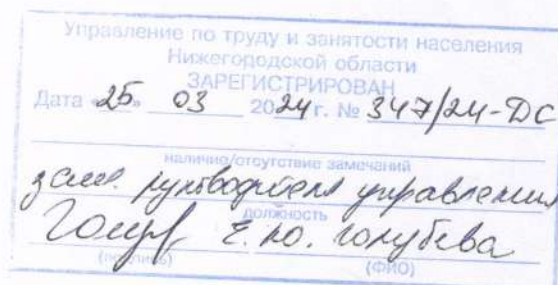 Управление по труду и занятости населения
Нижегородской области
ЗАРЕГИСТРИРОВАН
Дата «25» 03 2024 г. № 347/24-ДС
наличие/отсутствие замечаний
зам. руководителя управления
должность
Е.Ю. Голубева
(подпись) (ФИО)